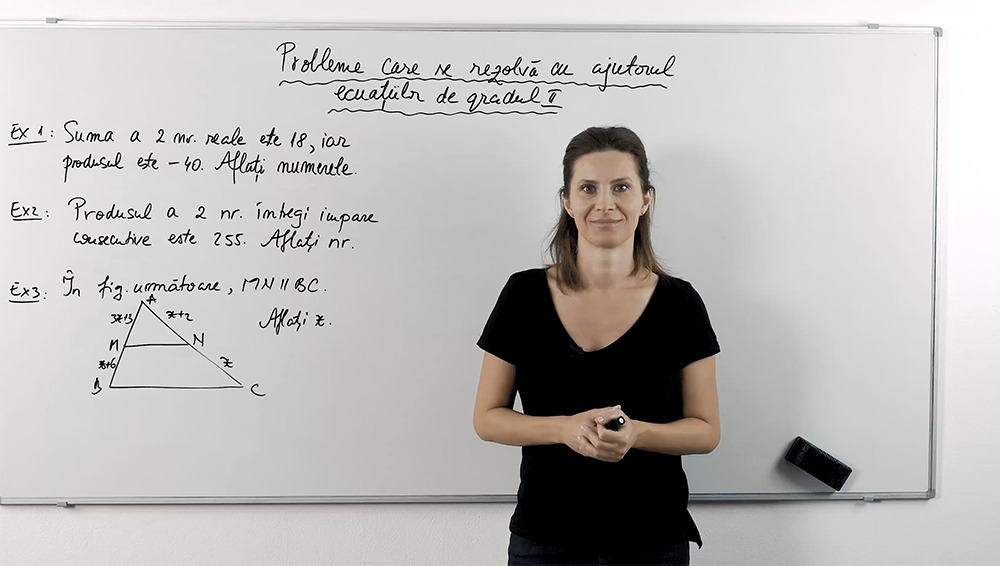 Probleme care se rezolvă cu ajutorul
ecuațiilor de gradul II
Ex 1: Suma a 2 nr. reale este 18, iar
produsul este -40. Aflați numerele.
Ex2: Produsul a 2 nr. întregi impare
consecutive este 255. Aflați nr.
Ex3: În fig. următoare, MN || BC.
Aflați x.
A
3x+3 x+2
M N
x+6 x
B C